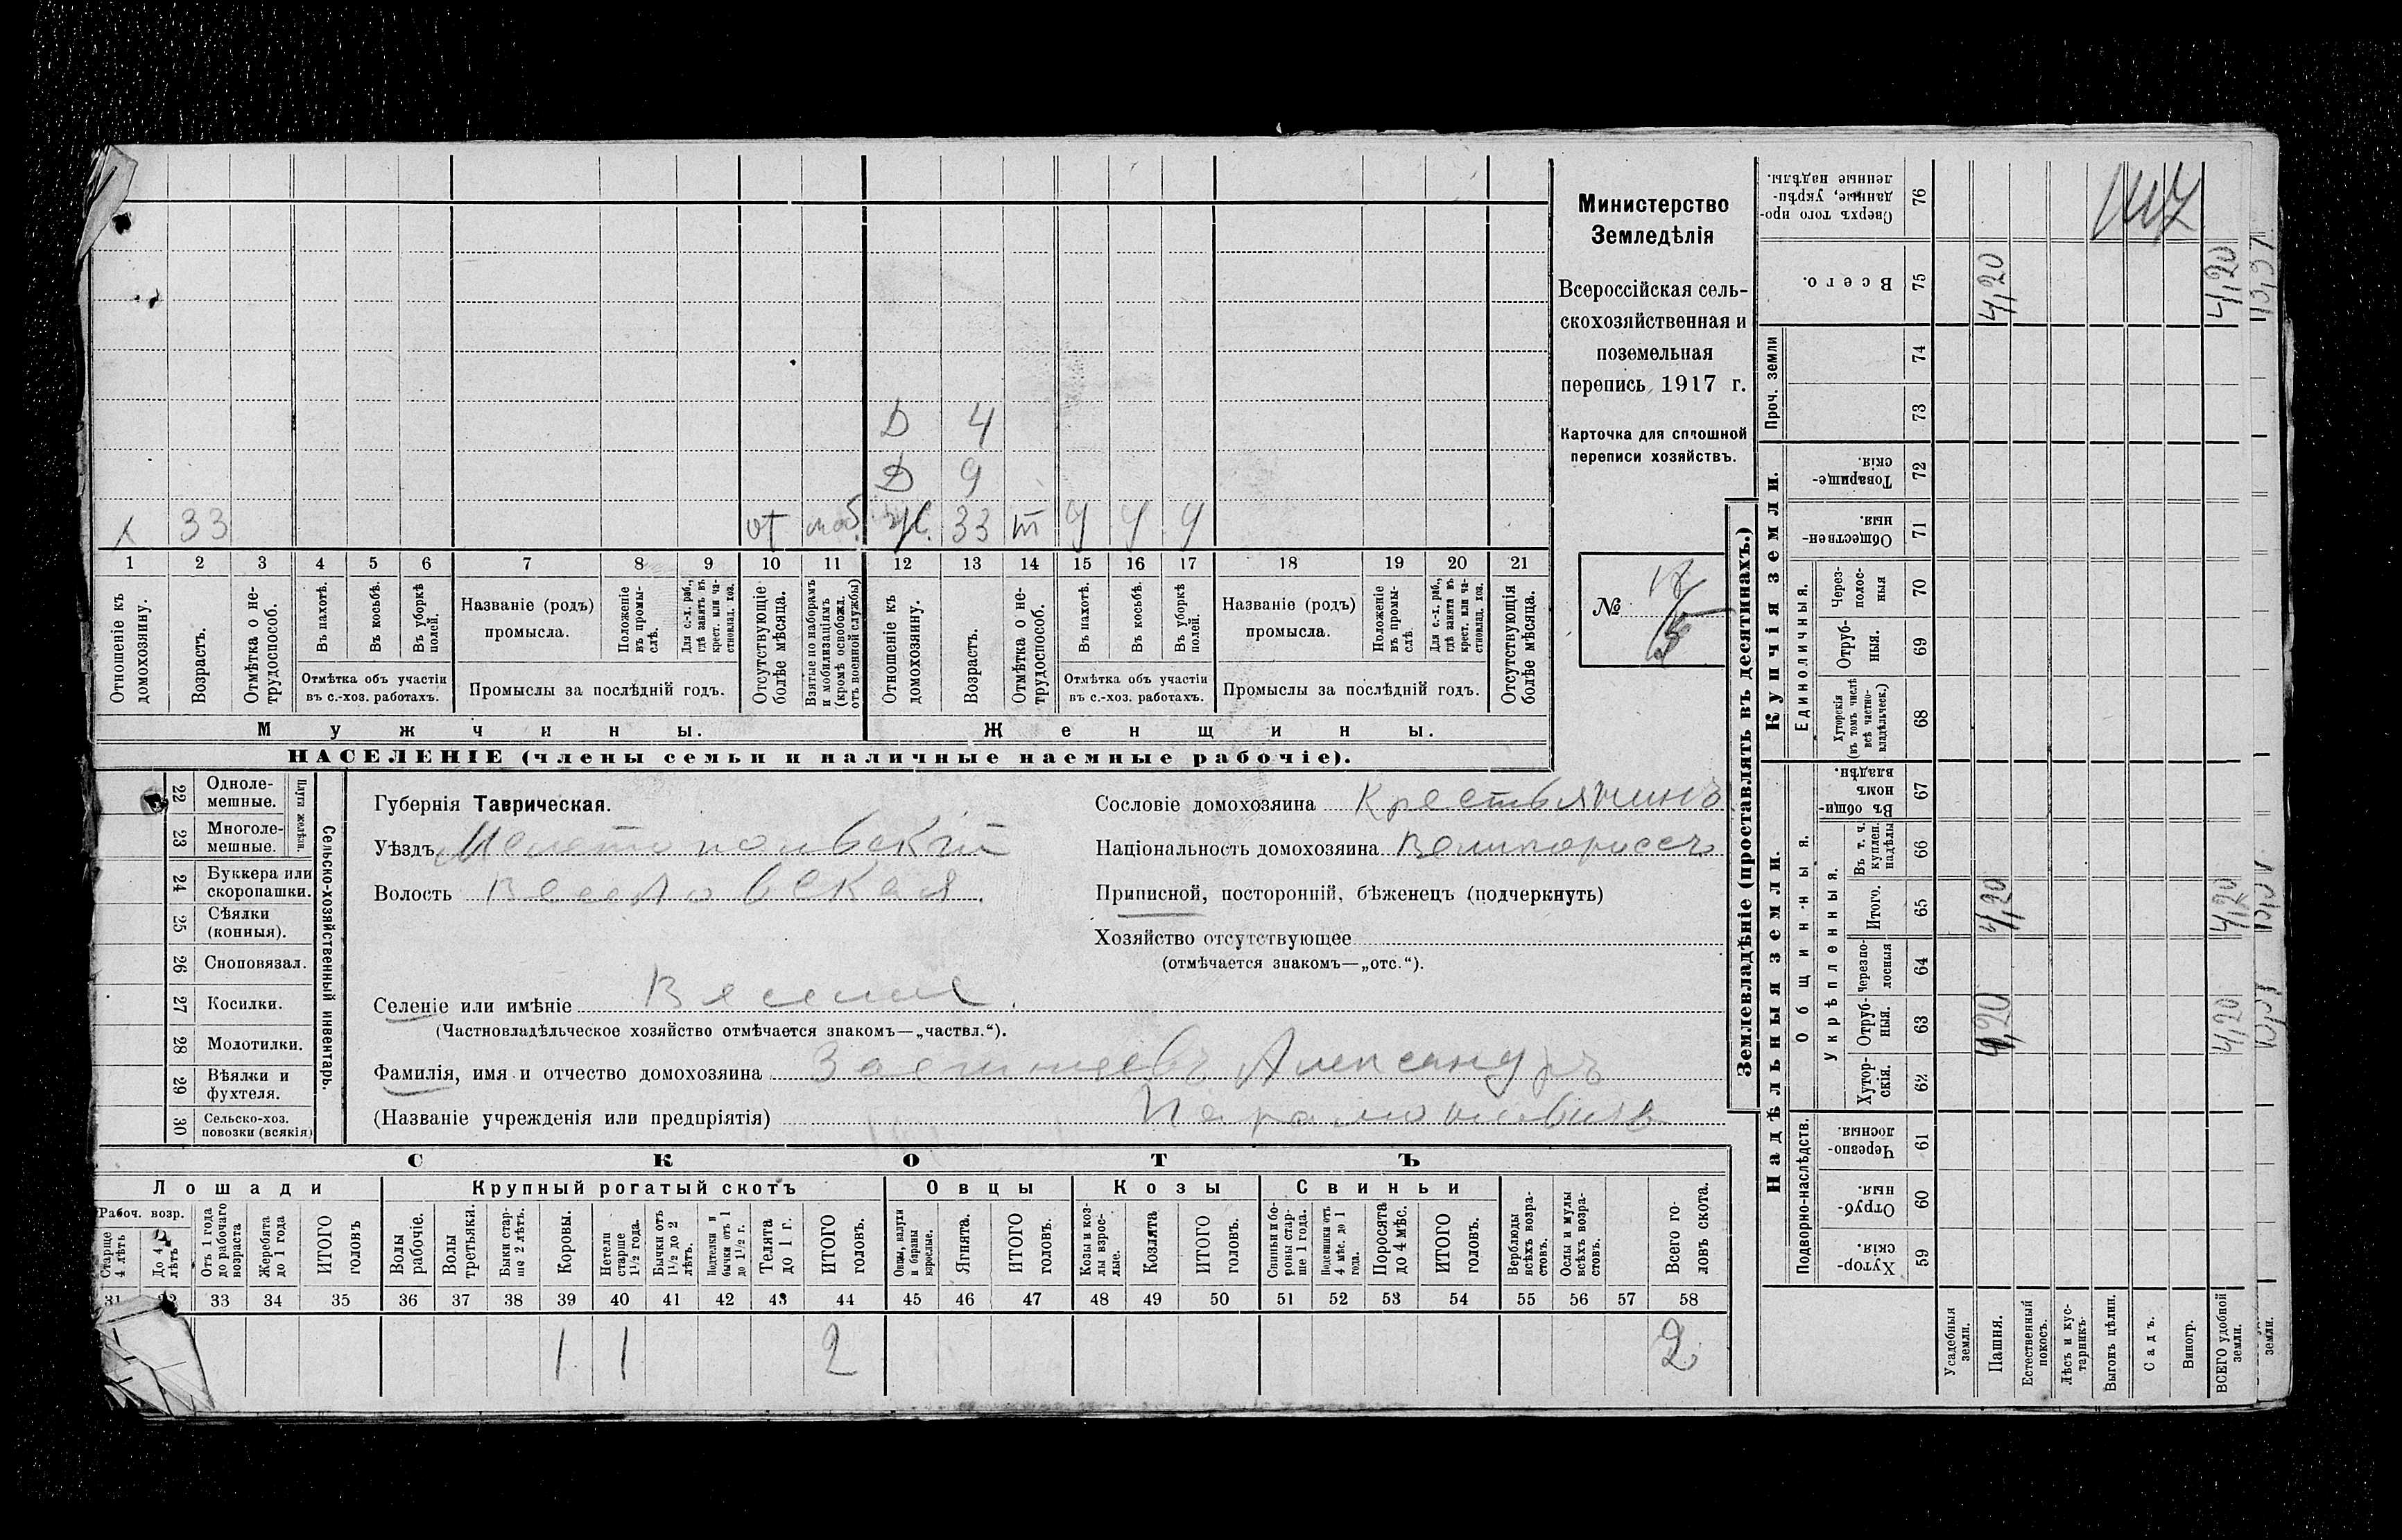 Д 4
Д 9
х 33 от моб. ж. 33 m ч ч ч
1 2 3 4 5 6 7 8 9 10 11 12 13 14 15 16 17 18 19 20 21
Отношеніе къ домохозяину.
Возрастъ.
Отмѣтка о не-трудоспособ.
Въ пахотѣ.
Въ косьбѣ.
Въ уборкѣ полей.
Отмѣтка объ участіи
въ с.-хоз. работахъ.
Названіе (родъ)
промысла.
Положеніе въ промы-слѣ.
Для с.-х. раб., гдѣ занятъ въ крест. или ча-стновлад. хоз.
Промыслы за послѣдній годъ.
Отсутствующіе болѣе мѣсяца.
Взятые по наборамъ и мобилизаціямъ (кромѣ освобожд. отъ военной службы)
Отношеніе къ домохозяину.
Возрастъ.
Отмѣтка о не-трудоспособ.
Въ пахотѣ.
Въ косьбѣ.
Въ уборкѣ полей.
Отмѣтка объ участіи
въ с.-хоз. работахъ.
Названіе (родъ)
промысла.
Положеніе въ промы-слѣ.
Для с.-х. раб., гдѣ занята въ крест. или ча-стновлад. хоз.
Промыслы за послѣдній годъ.
Отсутствующія болѣе мѣсяца.
Мужчины. Женщины.
НАСЕЛЕНІЕ (члены семьи и наличные наемные рабочіе).
Министерство
Земледѣлія
Всероссійская сель-
скохозяйственная и
поземельная
перепись 1917 г.
Карточка для сплошной
переписи хозяйствъ.
№
22 Одноле-мешные.
23 Многоле-мешные.
Плуги желѣзн.
24 Буккера или скоропашки.
25 Сѣялки (конныя).
26 Сноповязал.
27 Косилки.
28 Молотилки.
29 Вѣялки и фухтеля.
30 Сельско-хоз. повозки (всякія)
Сельско-хозяйственный инвентарь.
Губернія Таврическая.
Уѣздъ Мелитопольскій
Волость Веселовская.
Селеніе или имѣніе Веселое.
(Частновладѣльческое хозяйство отмѣчается знакомъ—„частвл.“).
Фамилія, имя и отчество домохозяина Александръ
(Названіе учрежденія или предпріятія)
Сословіе домохозяина Крестьянинъ
Національность домохозяина Великоруссъ
Приписной, посторонній, бѣженецъ (подчеркнуть)
Хозяйство отсутствующее
(отмѣчается знакомъ—„отс.“).
СКОТЪ
Лошади Крупный рогатый скотъ Овцы Козы Свиньи
Рабоч. возр.
Старще 4 лѣтъ
До 4 лѣтъ
Отъ 1 года до рабочаго возраста
Жеребята до 1 года
ИТОГО головъ
Волы рабочіе.
Волы третьяки.
Быки стар-ше 2 лѣтъ.
Коровы.
Нетели старше 1½ года.
Бычки отъ 1½ до 2 лѣтъ.
Подтелки и бычки отъ 1 до 1½ г.
Телята до 1 г.
ИТОГО головъ.
Овцы, валухи и бараны взрослые.
Ягнята.
ИТОГО головъ.
Козы и коз-лы взрос-лые.
Козлята
ИТОГО головъ.
Свиньи и бо-ровы стар-ше 1 года.
Подсвинки отъ 4 мѣс. до 1 года.
Поросята до 4 мѣс.
ИТОГО головъ.
Верблюды всѣхъ возра-стовъ.
Ослы и мулы всѣхъ возра-стовъ.
Всего го-ловъ скота.
31 32 33 34 35 36 37 38 39 40 41 42 43 44 45 46 47 48 49 50 51 52 53 54 55 56 57 58
1 1 2 2
Землевладѣніе (проставлять въ десятинахъ.)
Купчія земли.
Надѣльныя земли.
Сверхъ того про-данные, укрѣп-ленные надѣлы. 76
Всего. 75 4,20 4,20
Проч. земли 74
73
Товарище-скія. 72
Обществен-ныя. 71
Единоличныя.
Через-полос-ныя 70
Отруб-ныя. 69
Хуторскія (въ томъ числѣ всѣ частно-владѣльческ.) 68
Въ общи-номъ владѣн. 67
Общинныя.
Укрѣпленныя.
Въ т. ч. куплен. надѣлы 66
Итого. 65 4,20 4,20
Черезпо-лосныя 64
Отруб-ныя. 63 4,20 4,20
Хутор-скія. 62
Подворно-наслѣдств.
Черезпо-лосныя. 61
Отруб-ныя. 60
Хутор-скія. 59
Усадебныя земли.
Пашня.
Естественный покосъ.
Лѣсъ и кус-тарникъ.
Выгонъ цѣлин.
Садъ.
Виногр.
ВСЕГО удобной земли.
земли.